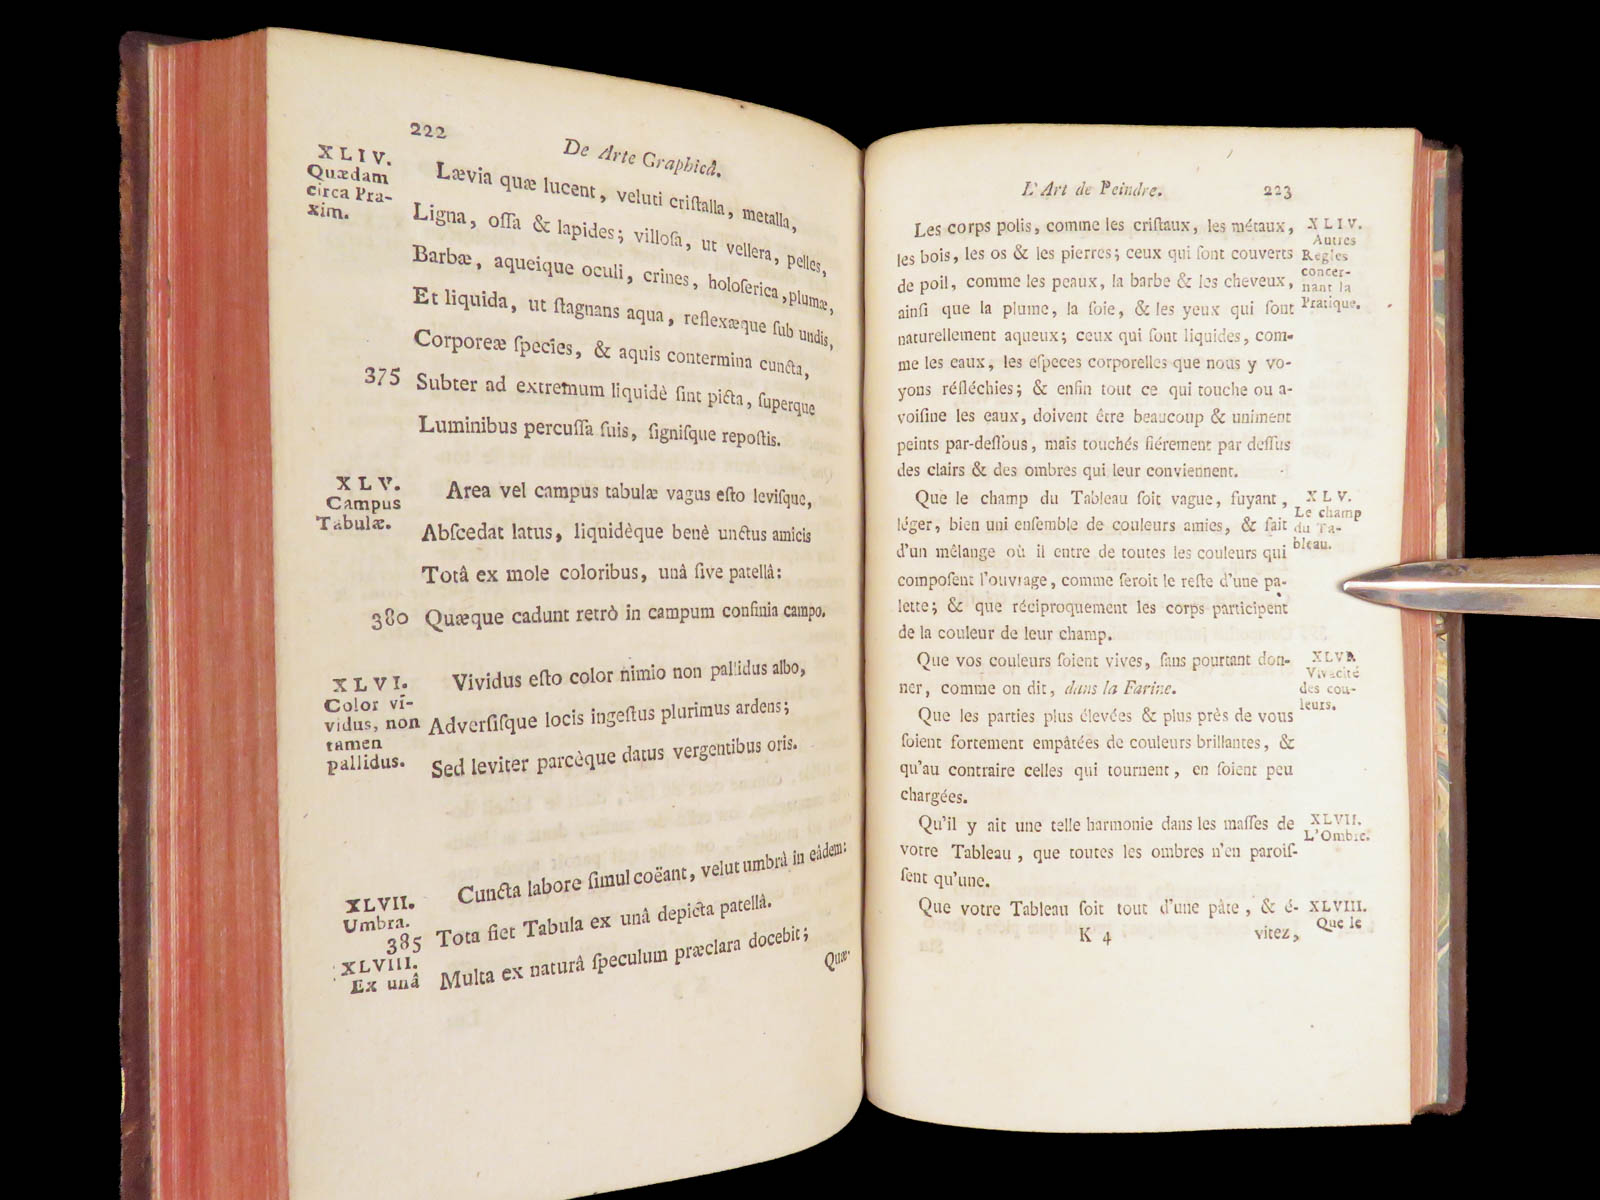 222
De Arte Graphicâ.
XLIV.
Quædam
circa Pra-
xim.
Lævia quæ lucent, veluti criſtalla, metalla,
Ligna, oſſa & lapides; villoſa, ut vellera, pelles,
Barbæ, aqueique oculi, crines, holoſerica, plumæ,
Et liquida, ut ſtagnans aqua, reflexæque ſub undis,
Corporeæ ſpecies, & aquis contermina cuncta,
375 Subter ad extremum liquidè ſint picta, ſuperque
Luminibus percuſſa ſuis, ſigniſque repoſtis.
XLV.
Campus
Tabulæ.
Area vel campus tabulæ vagus eſto leviſque,
Abſcedat latus, liquidèque benè unctus amicis
Totâ ex mole coloribus, unâ ſive patellâ:
380 Quæque cadunt retrò in campum confinia campo.
XLVI.
Color vi-
vidus, non
tamen
pallidus.
Vividus eſto color nimio non pallidus albo,
Adverſiſque locis ingeſtus plurimus ardens;
Sed leviter parcèque datus vergentibus oris.
XLVII.
Umbra.
Cuncta labore ſimul coëant, velut umbrâ in eâdem:
385 Tota fiet Tabula ex unâ depicta patellâ.
XLVIII.
Ex unâ
Multa ex naturâ ſpeculum præclara docebit;
Quæ-
L'Art de Peindre. 223
Les corps polis, comme les criſtaux, les métaux,
les bois, les os & les pierres; ceux qui ſont couverts
de poil, comme les peaux, la barbe & les cheveux,
ainſi que la plume, la ſoie, & les yeux qui ſont
naturellement aqueux; ceux qui ſont liquides, com-
me les eaux, les eſpeces corporelles que nous y vo-
yons réfléchies; & enfin tout ce qui touche ou a-
voiſine les eaux, doivent être beaucoup & uniment
peints par-deſſous, mais touchés fiérement par deſſus
des clairs & des ombres qui leur conviennent.
XLIV.
Autres
Regles
concer-
nant la
Pratique.
Que le champ du Tableau ſoit vague, fuyant,
léger, bien uni enſemble de couleurs amies, & fait
d'un mêlange où il entre de toutes les couleurs qui
compoſent l'ouvrage, comme ſeroit le reſte d'une pa-
lette; & que réciproquement les corps participent
de la couleur de leur champ.
XLV.
Le champ
du Ta-
bleau.
Que vos couleurs ſoient vives, ſans pourtant don-
ner, comme on dit, dans la Farine.
XLVI.
Vivacité
des cou-
leurs.
Que les parties plus élevées & plus près de vous
ſoient fortement empâtées de couleurs brillantes, &
qu'au contraire celles qui tournent, en ſoient peu
chargées.
Qu'il y ait une telle harmonie dans les maſſes de
votre Tableau, que toutes les ombres n'en paroiſ-
ſent qu'une.
XLVII.
L'Ombre.
Que votre Tableau ſoit tout d'une pâte, & é-
XLVIII.
Que le
K 4 vitez,